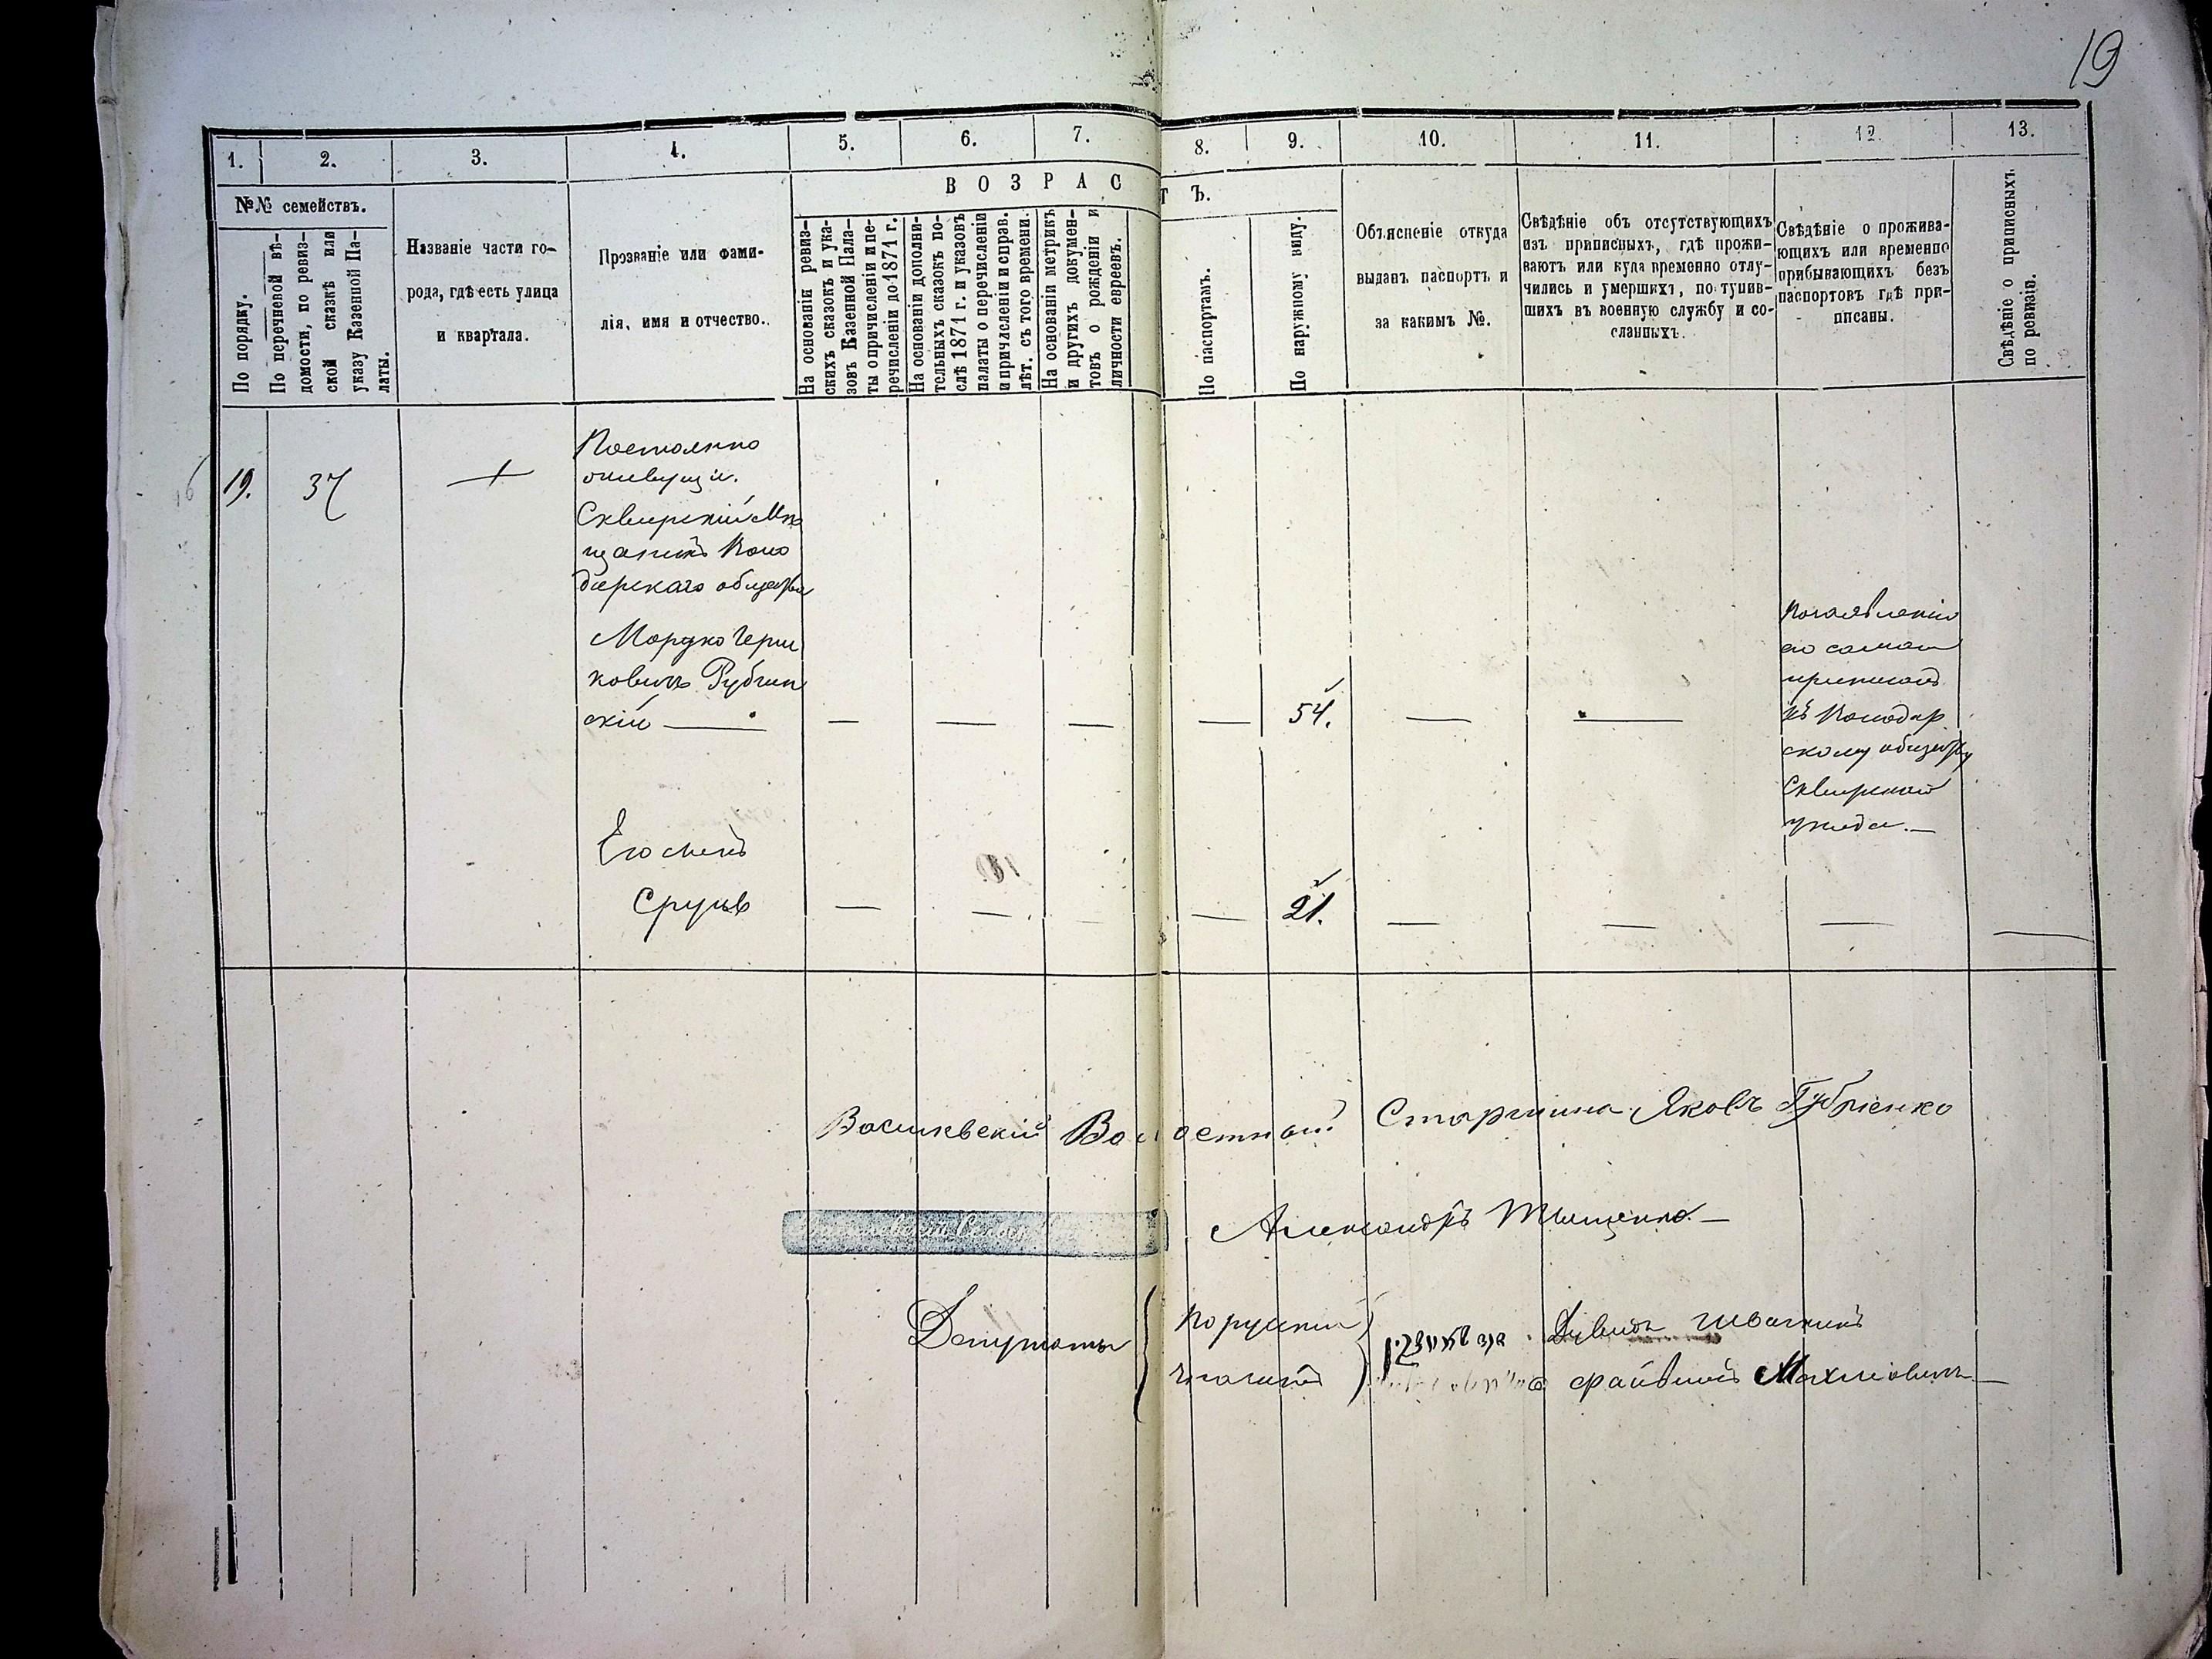 19
1. 2. 3. 4. 5. 6. 7. 8. 9. 10. 11. 12. 13.
№№ семействъ.
По порядку.
По перечневой вѣ-
домости, по ревиз-
ской сказкѣ или
указу Казенной Па-
латы.
Названіе части го-
рода, гдѣ есть улица
и квартала.
Прозваніе или фами-
лія, имя и отчество.
ВОЗРАСТЪ.
На основаніи ревиз-
скихъ сказокъ и ука-
зовъ Казенной Пала-
ты о причисленіи и пе-
речисленіи до 1871 г.
На основаніи дополни-
тельныхъ сказокъ по-
слѣ 1871 г. и указовъ
палаты о перечисленіи
и причисленіи и справ.
лѣт. съ того времени.
На основаніи метрикъ
и другихъ докумен-
товъ о рожденіи и
личности евреевъ.
По паспортамъ.
По наружному виду.
Объясненіе откуда
выданъ паспортъ и
за какимъ №.
Свѣдѣніе объ отсутствующихъ
изъ приписныхъ, гдѣ прожи-
ваютъ или куда временно отлу-
чились и умершихъ, поступив-
шихъ въ военную службу и со-
сланныхъ.
Свѣдѣніе о прожива-
ющихъ или временно
прибывающихъ безъ
паспортовъ гдѣ при-
писаны.
Свѣдѣніе о приписныхъ
по ревизіи.
19. 37
Постоянно
живущіе.
Сквирскій Мѣ
щанинъ
общества
Мордко Герш
ковичъ Рубин
скій — — — — — 54. — —
По заявленію
его самаго
приписанъ
къ
скому обществу
Сквирскаго
уѣзда. —
Его сынъ
Сруль — — — — 21. — — — —
Волостной Старшина Яковъ Губріенко
Александръ Тищенко. —
Депутаты
По русски
Файвишъ Махновичъ —